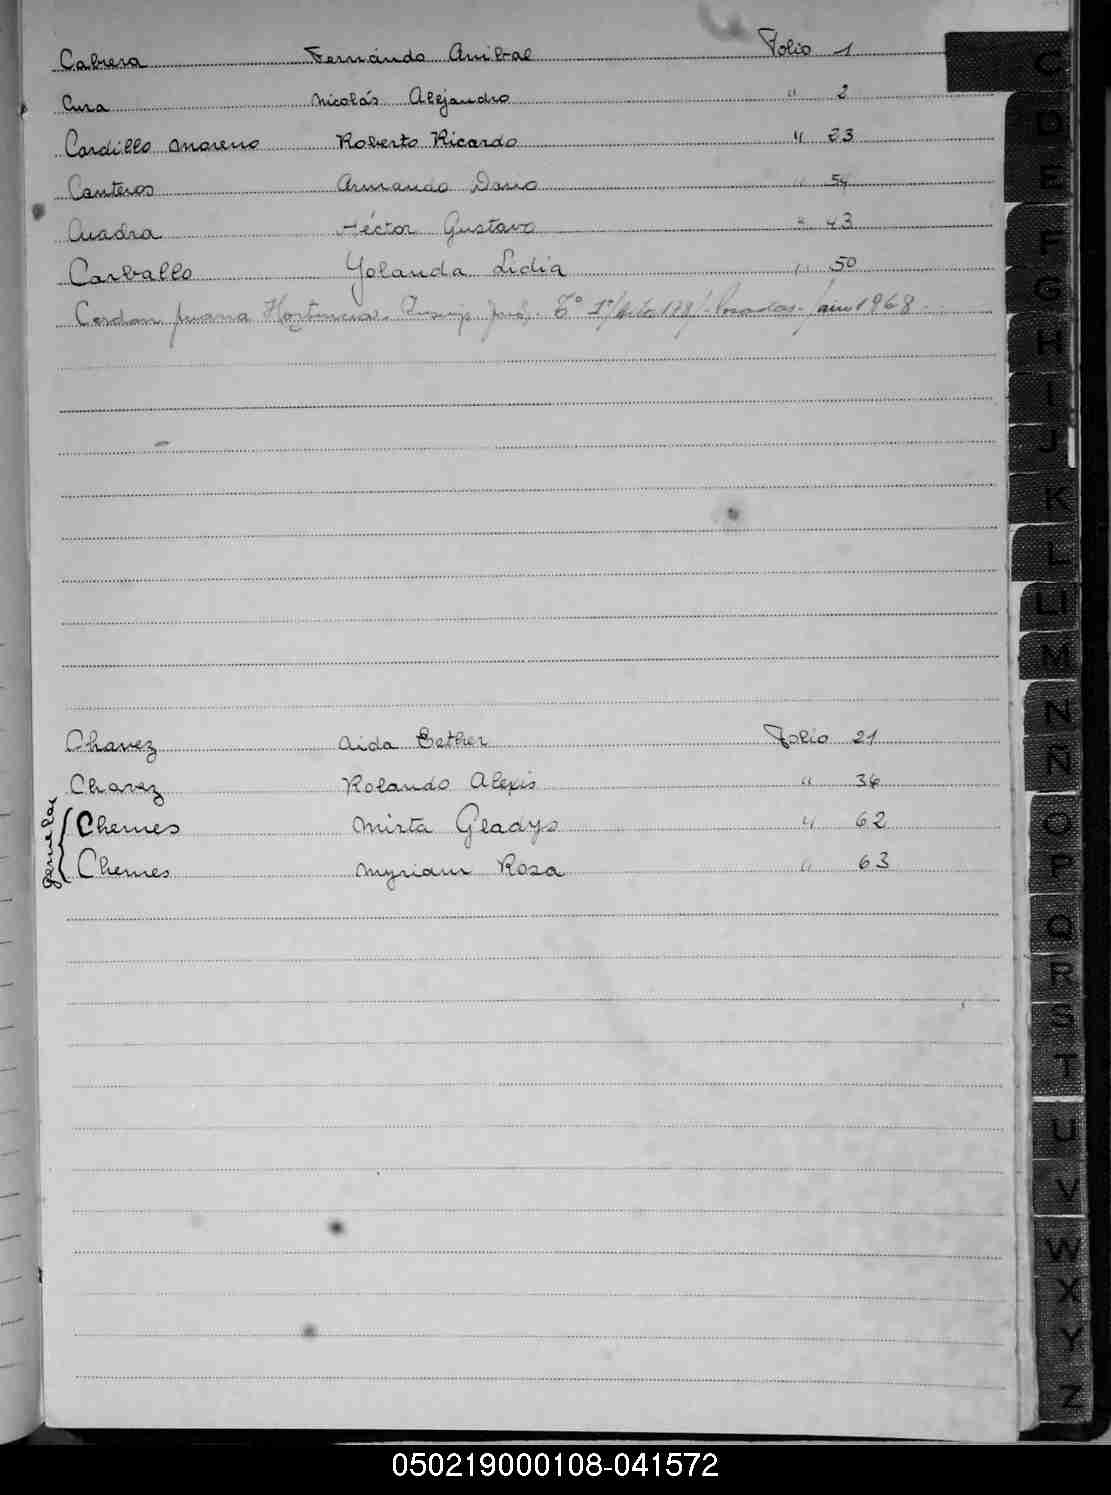 Cabrera Fernándo Anibal Folio 1
Cura Nicolás Alejandro " 2
Cardillo Moreno Roberto Ricardo " 23
Canteros Armando Dario " 54
Cuadra Héctor Gustavo " 43
Carballo Yolanda Lidia " 50
Cerdan Juana Hortincia. T° 1°/ 128/ Posadas-/año 1968
Chavez Aida Esther Folio 21
Chavez Rolando Alexis " 36
gemelas
Chemes Mirta Gladys " 62
Chemes Myriam Rosa " 63
C
D
E
F
G
H
I
J
K
L
LL
M
N
Ñ
O
P
Q
R
S
T
U
V
W
X
Y
Z
050219000108-041572